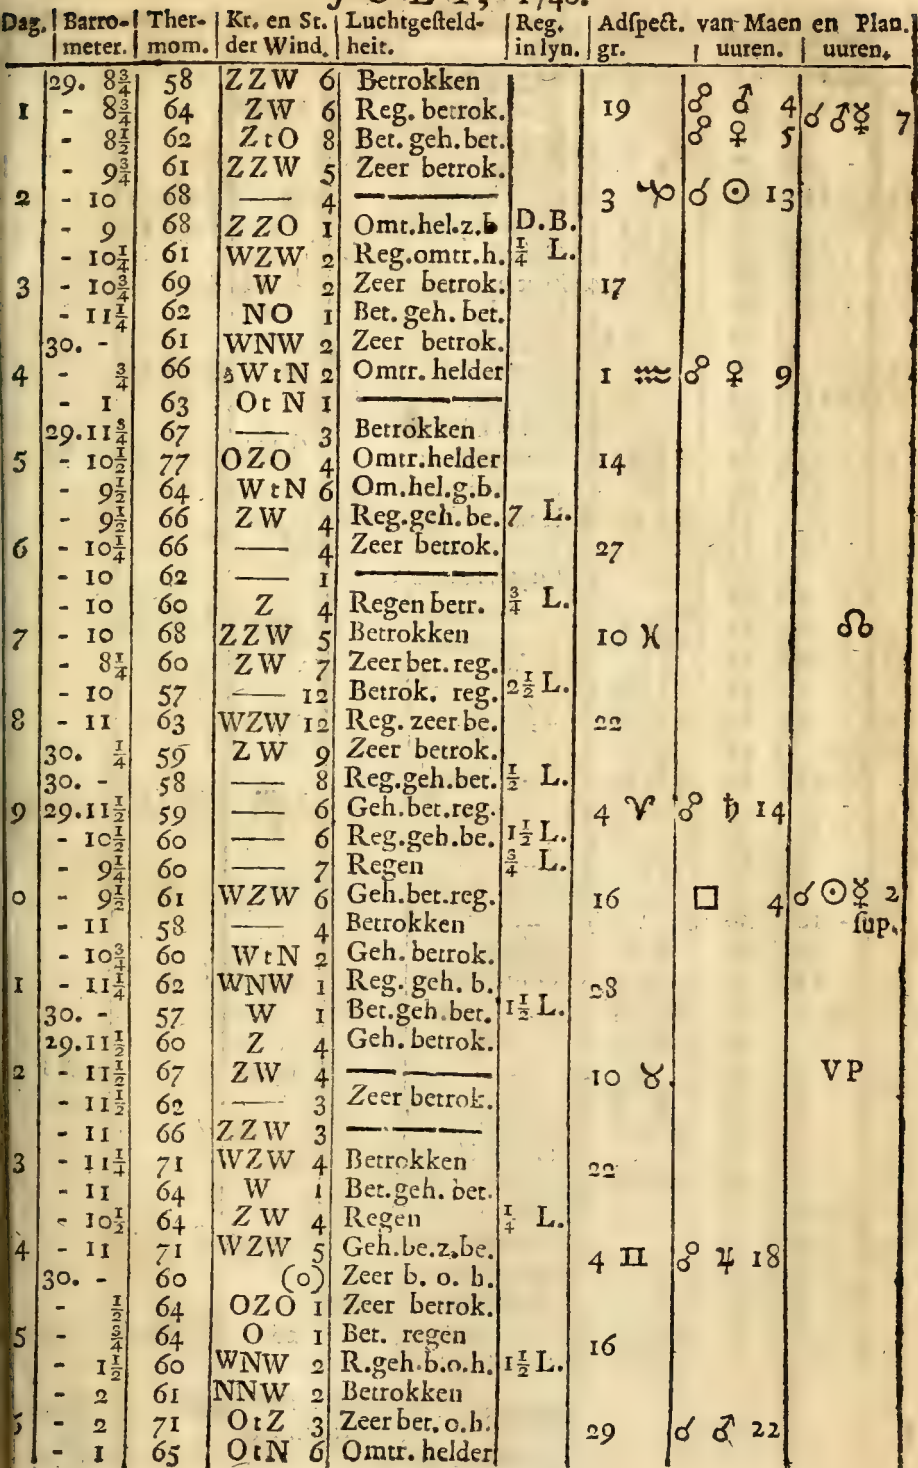 J U L Y, 1740.
Dag. Barro- Ther- Kr. en St. Luchtgeſteld- Reg. Adſpect. van Maen en Plan.
meter. mom. der Wind. heit. in lyn. gr. uuren. uuren.
29. 8¾ 58 ZZW 6 Betrokken ☍ ♂ 4
1 - 8¾ 64 ZW 6 Reg. betrok. 19 ☌♂☿ 7
- 8½ 62 ZtO 8 Bet. geh. bet. ☍ ♀ 5
- 9¾ 61 ZZW 5 Zeer betrok.
2 - 10 68 — 4 — 3 ♑ ☌ ☉ 13
- 9 68 ZZO 1 Omt.hel.z.b D.B.
- 10¼ 61 WZW 2 Reg.omtr.h. ¼ L.
3 - 10¾ 69 W 2 Zeer betrok. 17
- 11¼ 62 NO 1 Bet. geh. bet.
30. - 61 WNW 2 Zeer betrok.
4 - ¾ 66 WtN 2 Omtr. helder 1 ♒ ☍ ♀ 9
- 1 63 OtN 1 —
29.11¾ 67 — 3 Betrokken
5 - 10½ 77 OZO 4 Omtr.helder 14
- 9½ 64 WtN 6 Om.hel.g.b.
- 9½ 66 ZW 4 Reg.geh.be. 7 L.
6 - 10¼ 66 — 4 Zeer betrok. 27
- 10 62 — 1 —
- 10 60 Z 4 Regen betr. ¾ L.
7 - 10 68 ZZW 5 Betrokken 10 ♓ ☊
- 8¼ 60 ZW 7 Zeer bet. reg.
- 10 57 — 12 Betrok. reg. 2½ L.
8 - 11 63 WZW 12 Reg. zeer be. 22
30. ¼ 59 ZW 9 Zeer betrok.
30. - 58 — 8 Reg.geh.bet. ½ L.
9 29.11½ 59 — 6 Geh.bet.reg. 4 ♈ ☍ ♄ 14
- 10½ 60 — 6 Reg.geh.be. 1½ L.
- 9¼ 60 — 7 Regen ¾ L.
0 - 9½ 61 WZW 6 Geh.bet.reg. 16 □ 4 ☌☉☿ 2
- 11 58 — 4 Betrokken ſup.
- 10¾ 60 WtN 2 Geh. betrok.
1 - 11¼ 62 WNW 1 Reg. geh. b. 28
30. - 57 W 1 Bet.geh.bet. 1½ L.
29.11½ 60 Z 4 Geh. betrok.
2 - 11½ 67 ZW 4 — 10 ♉. VP
- 11½ 62 — 3 Zeer betrok.
- 11 66 ZZW 3 —
3 - 11¼ 71 WZW 4 Betrokken 22
- 11 64 W 1 Bet.geh. bet.
- 10½ 64 ZW 4 Regen ¼ L.
4 - 11 71 WZW 5 Geh.be.z.be. 4 ♊ ☍ ♃ 18
30. - 60 (o) Zeer b. o. h.
- ½ 64 OZO 1 Zeer betrok.
5 - ¾ 64 O 1 Bet. regen 16
- 1½ 60 WNW 2 R.geh.b.o.h. 1½ L.
- 2 61 NNW 2 Betrokken
- 2 71 OtZ 3 Zeer bet. o.h. 29 ☌ ♂ 22
- 1 65 OtN 6 Omtr. helder